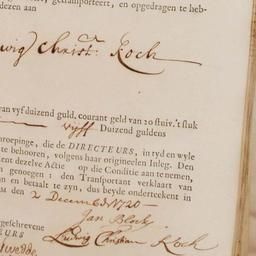 getransporteert, en opgedragen te heb-
dezen aan
wig Christ: Koch
van vyf duizend guld. courant geld van 20 stuiv. 't stuk
vyff Duizend guldens
hroepinge, die de DIRECTEURS, in tyd en wyle
te behooren, volgens haar origineelen Inleg. Den
ent dezelve Actie op die Conditie aan te nemen,
genoegen: den Transportant verklaart van
n en betaalt te zyn, dus beyde onderteekent in
m den 2 Decemb 1720
Jan Block
geschreve
EURS Ludwig Christian Koch